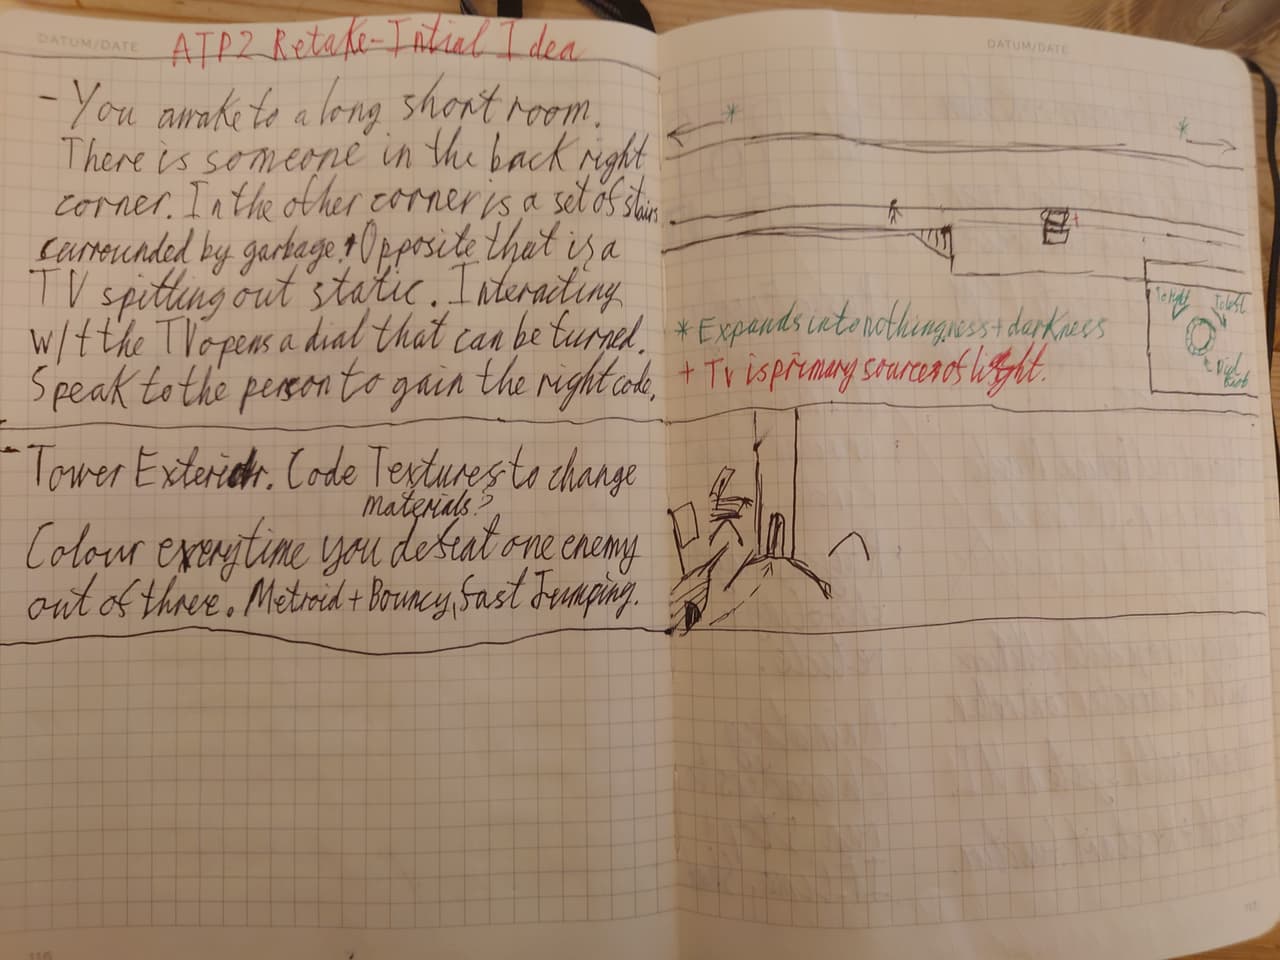 DATUM/DATE
ATP2 Retake-Intial Idea
- You awake to a long short room.
There is someone in the back right
corner. In the other corner is a set of stairs
surrounded by garbage. Opposite that is a
TV spitting out static. Interacting
w/t the TV opens a dial that can be turned.
Speak to the person to gain the right code.
- Tower Exterior. Code Textures to change
materials?
Colour everytime you defeat one enemy
out of three. Metroid + Bouncy, Fast Jumping.
116
DATUM/DATE
* *
+
* Expands into nothingness + darkness
+ TV is primary source of light.
To Right
To Left
Dial